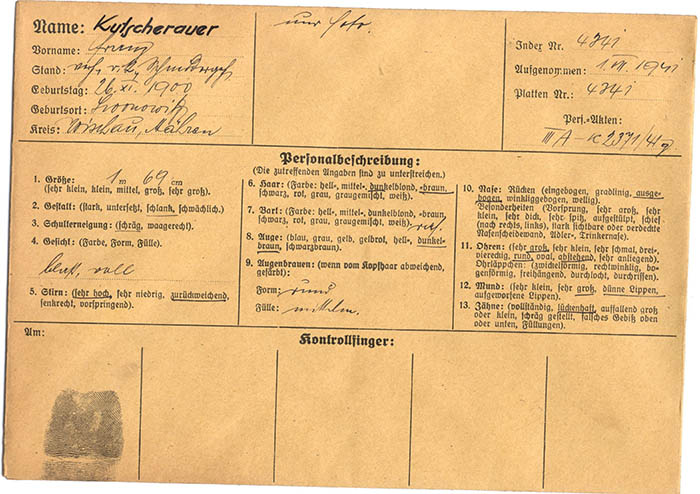 Name: Kutscherauer
Vorname: Franz
Stand: verh.
Geburtstag: 26. XI. 1900
Geburtsort:
Kreis: Wischau, Mähren
nur Foto.
Index Nr. 4341
Aufgenommen: 1. VII. 1941
Platten Nr.: 4341
Pers.-Akten:
III A-
Personalbeschreibung:
(Die zutreffenden Angaben sind zu unterstreichen.)
1. Größe: 1 m 69 cm
(sehr klein, klein, mittel, groß, sehr groß).
2. Gestalt: (stark, untersetzt, schlank, schwächlich).
3. Schulterneigung: (schräg, waagerecht).
4. Gesicht: (Farbe, Form, Fülle).
blaß, voll
5. Stirn: (sehr hoch, sehr niedrig, zurückweichend,
senkrecht, vorspringend).
6. Haar: (Farbe: hell-, mittel-, dunkelblond, -braun,
schwarz, rot, grau, graugemischt, weiß).
7. Bart: (Farbe: hell-, mittel-, dunkelblond, -braun,
schwarz, rot, grau, graugemischt, weiß)
8. Auge: (blau, grau, gelb, gelbrot, hell-, dunkel-
braun, schwarzbraun).
9. Augenbrauen: (wenn vom Kopfhaar abweichend,
gefärbt):
Form: rund
Fülle: mittelm.
10. Nase: Rücken (eingebogen, gradlinig, ausge-
bogen, winkliggebogen, wellig).
Besonderheiten (Vorsprung, sehr groß, sehr
klein, sehr dick, sehr spitz, aufgestülpt, schief-
nach rechts, links), stark sichtbare oder verdeckte
Nasenscheidewand, Adler-, Trinkernase).
11. Ohren: (sehr groß, sehr klein, sehr schmal, drei-,
viereckig, rund, oval, abstehend, sehr anliegend).
Ohrläppchen: (zwickelförmig, rechtwinklig, bo-
genförmig, freihängend, durchlocht, durchrissen).
12. Mund: (sehr klein, sehr groß, dünne Lippen,
aufgeworfene Lippen).
13. Zähne: (vollständig, lückenhaft, auffallend groß
oder klein, schräg gestellt, falsches Gebiß oben
oder unten, Füllungen).
Am:
Kontrollfinger: